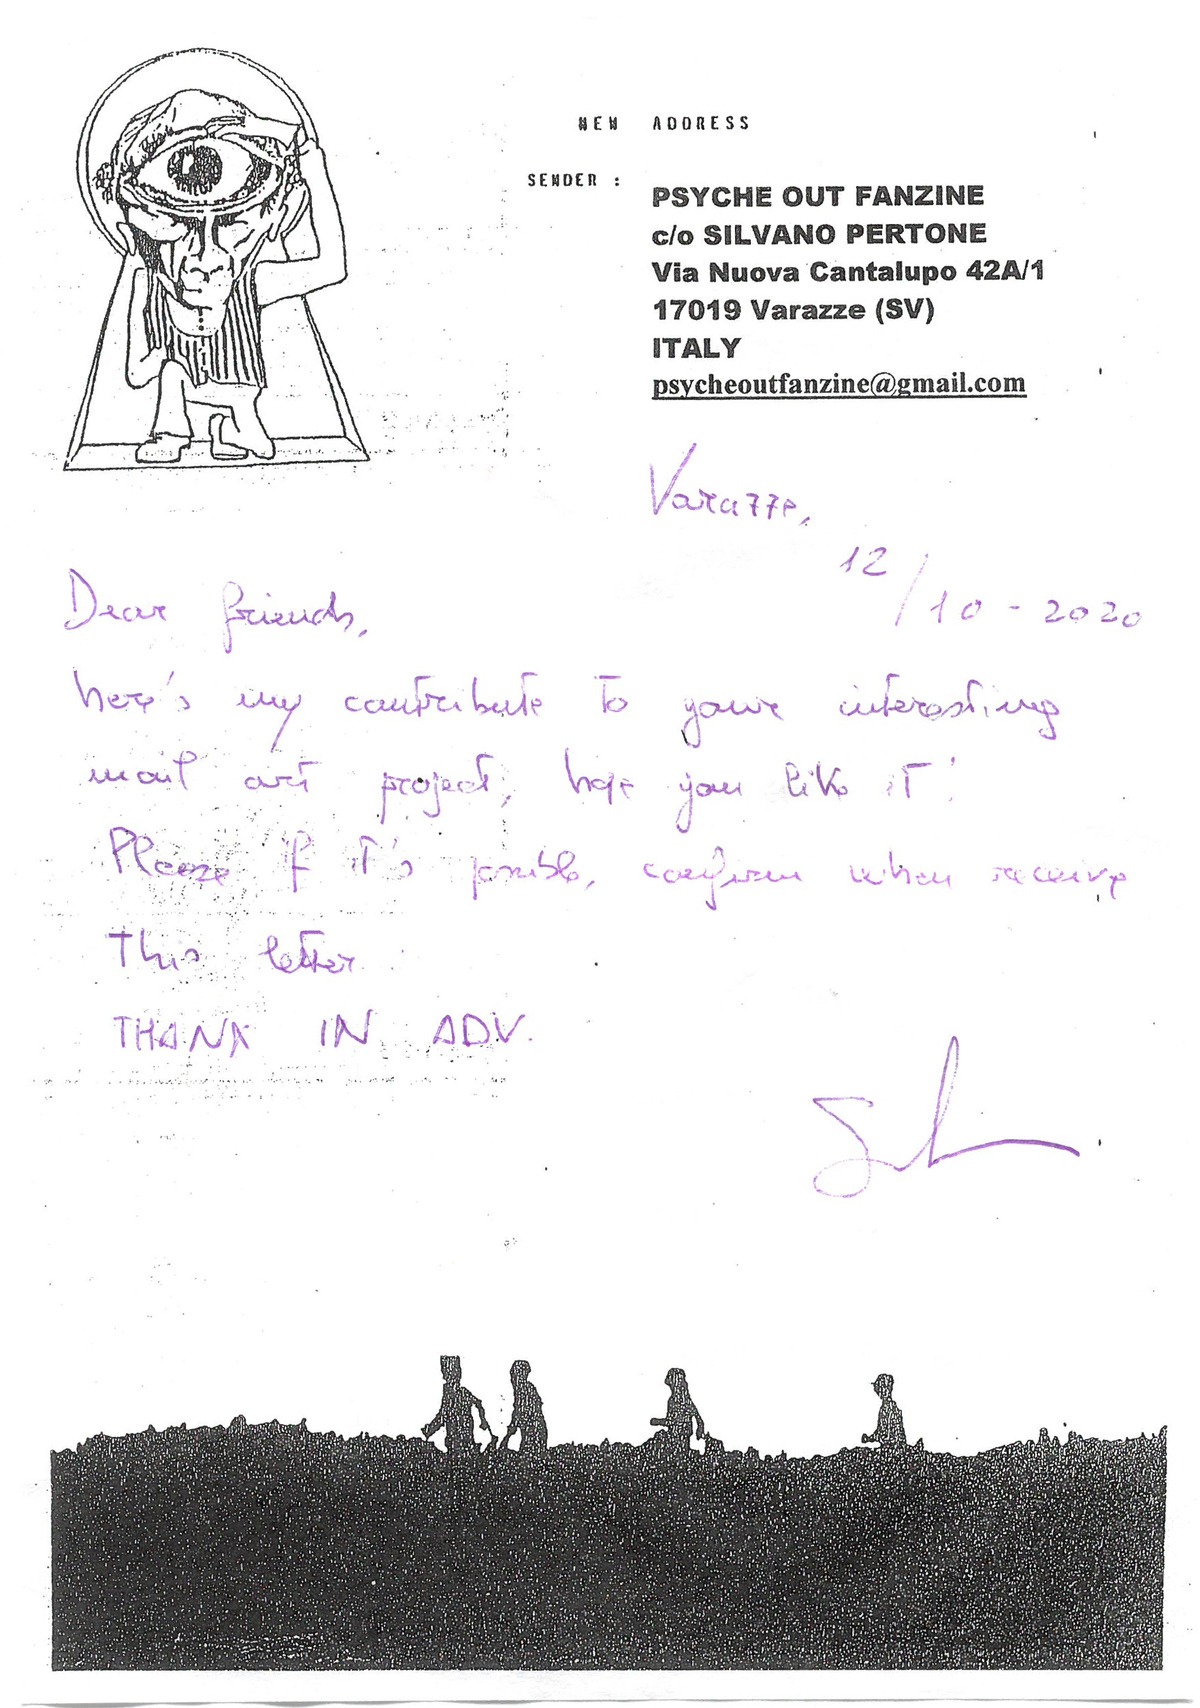 NEW ADDRESS
SENDER :
PSYCHE OUT FANZINE
c/o SILVANO PERTONE
Via Nuova Cantalupo 42A/1
17019 Varazze (SV)
ITALY
psycheoutfanzine@gmail.com
Varazze,
12/10-2020
Dear friends,
here's my contribute to your interesting
mail art project, hope you like it!
Please if it's possible, confirm when receive
This letter
THANX IN ADV.